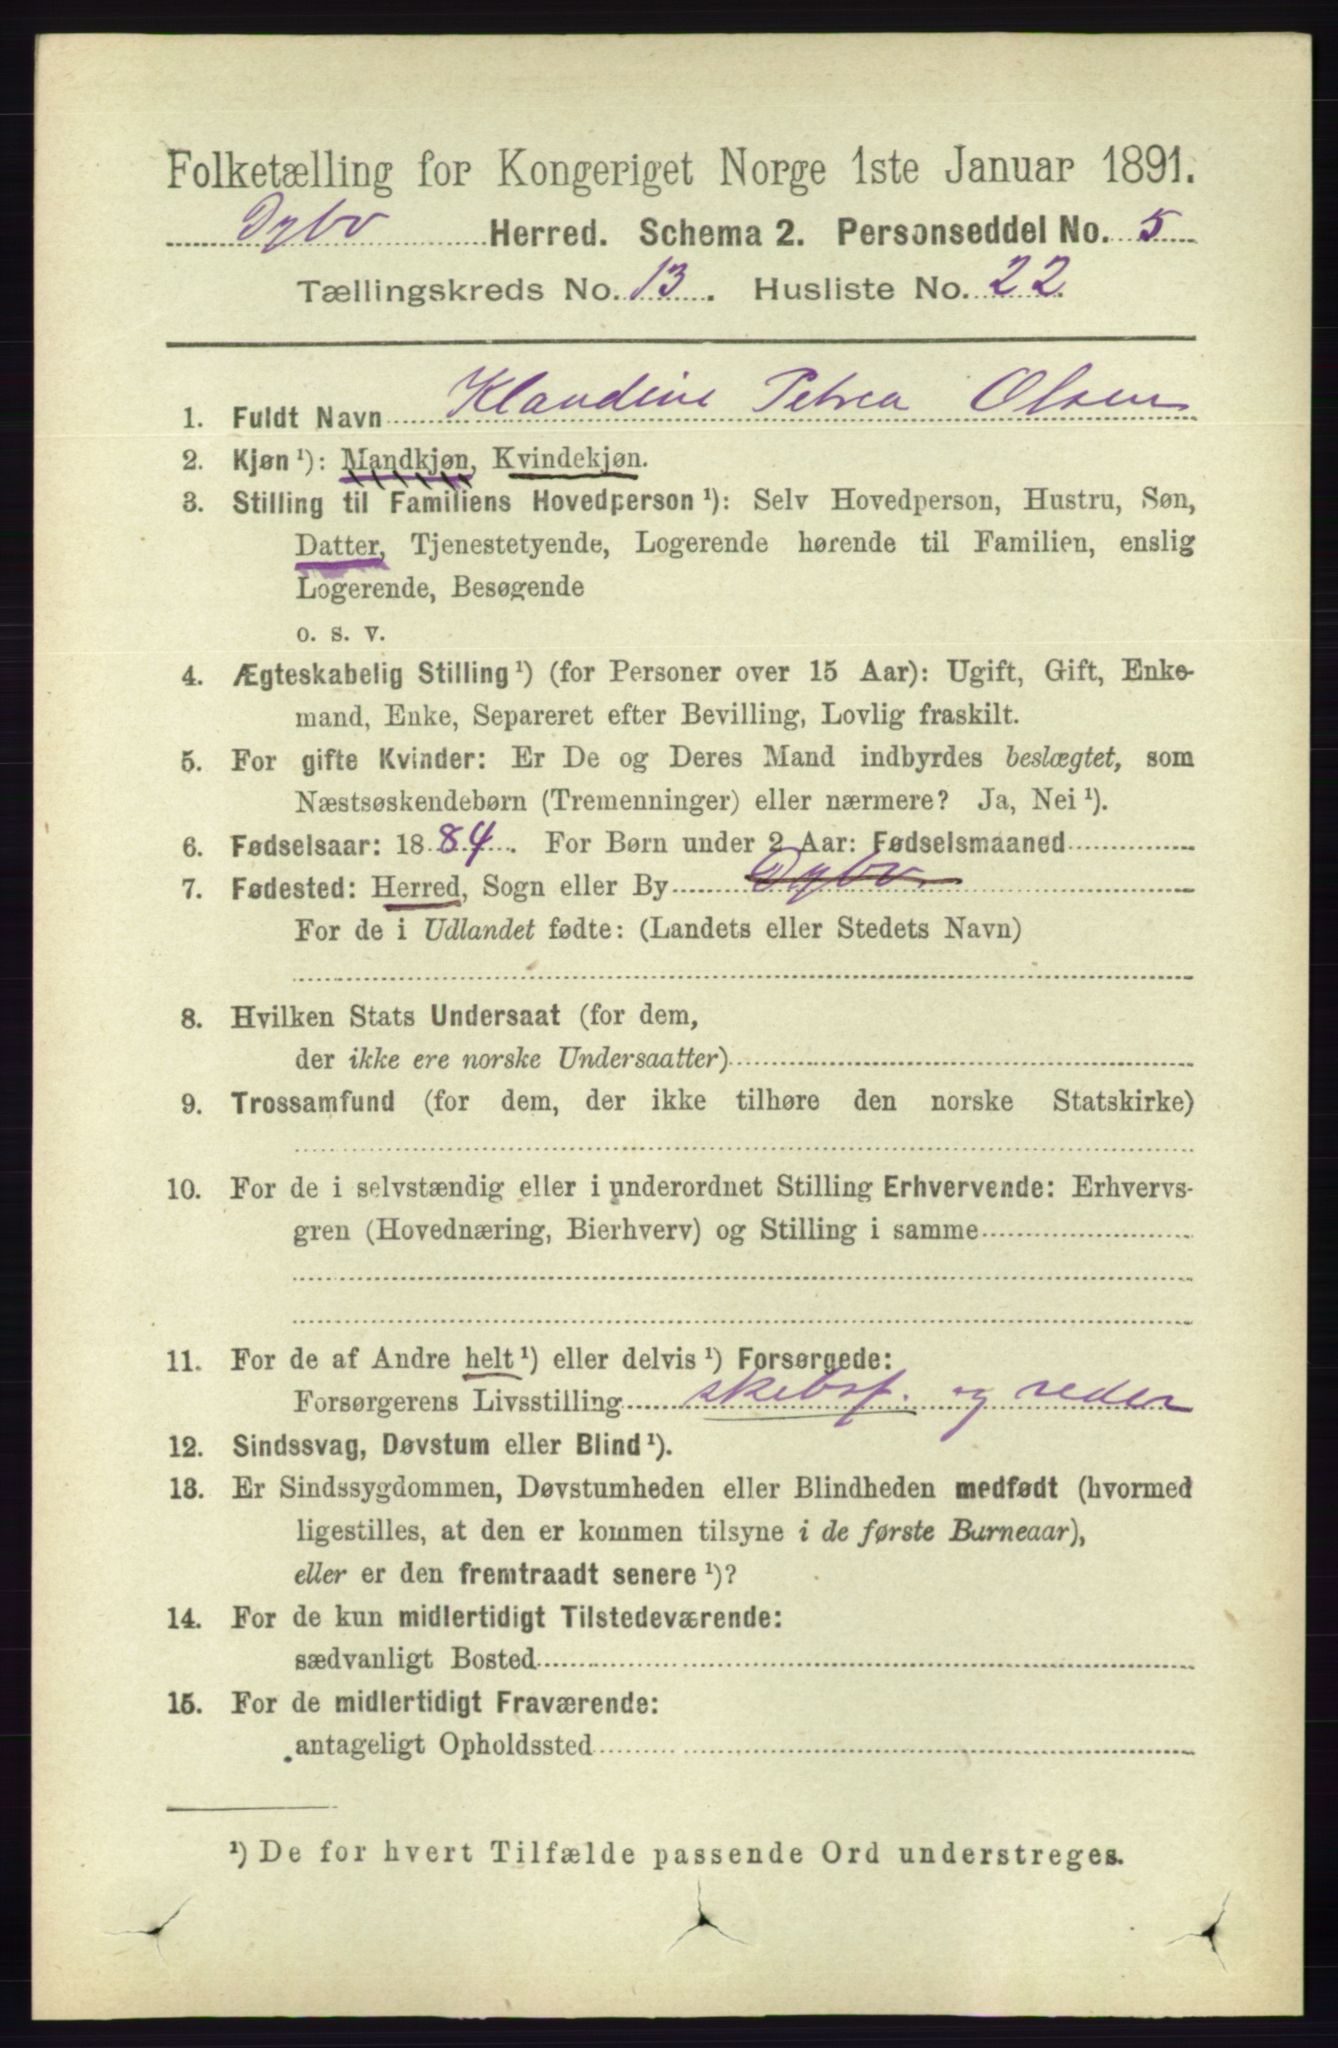 Folketælling for Kongeriget Norge 1ste Januar 1891.
Dybv Herred. Schema 2. Personseddel No. 5
Tællingskreds No. 13. Husliste No. 22.
1. Fuldt Navn Klaudine Petrea Olsen
2. Kjøn¹): Mandkjøn, Kvindekjøn.
3. Stilling til Familiens Hovedperson¹): Selv Hovedperson, Hustru, Søn,
Datter, Tjenestetyende, Logerende hørende til Familien, enslig
Logerende, Besøgende
o. s. v.
4. Ægteskabelig Stilling¹) (for Personer over 15 Aar): Ugift, Gift, Enke-
mand, Enke, Separeret efter Bevilling, Lovlig fraskilt.
5. For gifte Kvinder: Er De og Deres Mand indbyrdes beslægtet, som
Næstsøskendebørn (Tremenninger) eller nærmere? Ja, Nei¹).
6. Fødselsaar: 1884. For Børn under 2 Aar: Fødselsmaaned
7. Fødested: Herred, Sogn eller By Dybv.
For de i Udlandet fødte: (Landets eller Stedets Navn)
8. Hvilken Stats Undersaat (for dem,
der ikke ere norske Undersaatter)
9. Trossamfund (for dem, der ikke tilhøre den norske Statskirke)
10. For de i selvstændig eller i underordnet Stilling Erhvervende: Erhvervs-
gren (Hovednæring, Bierhverv) og Stilling i samme
11. For de af Andre helt¹) eller delvis¹) Forsørgede:
Forsørgerens Livsstilling skibsf. og reder
12. Sindssvag, Døvstum eller Blind¹).
13. Er Sindssygdommen, Døvstumheden eller Blindheden medfødt (hvormed
ligestilles, at den er kommen tilsyne i de første Barneaar),
eller er den fremtraadt senere¹)?
14. For de kun midlertidigt Tilstedeværende:
sædvanligt Bosted
15. For de midlertidigt Fraværende:
antageligt Opholdssted
¹) De for hvert Tilfælde passende Ord understreges.